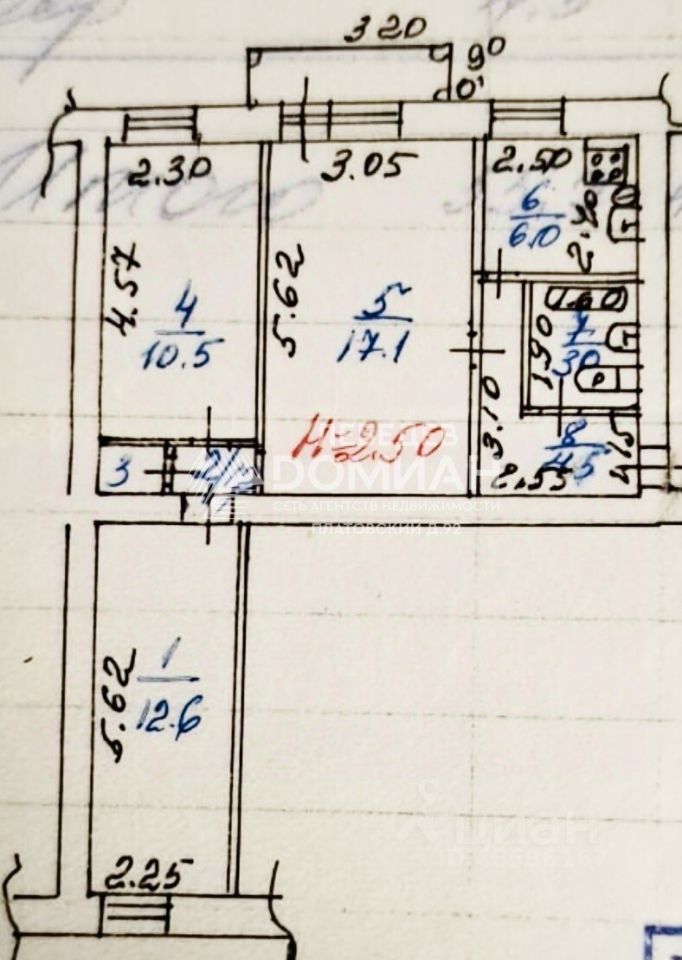 3.20
90
2.30
3.05
2.50
6
6.0
2.40
4.57
5.62
4
10.5
5
17.1
1.60
1.90
7
3.0
3.10
8
4.5
2.55
Н=2.50
3
2
ПЕРЕДЕЗ
DОМИАН
СЕТЬ АГЕНТСТВ НЕДВИЖИМОСТИ
ПЛАТОВСКИЙ Д.92
5.62
1
12.6
циан
2.25